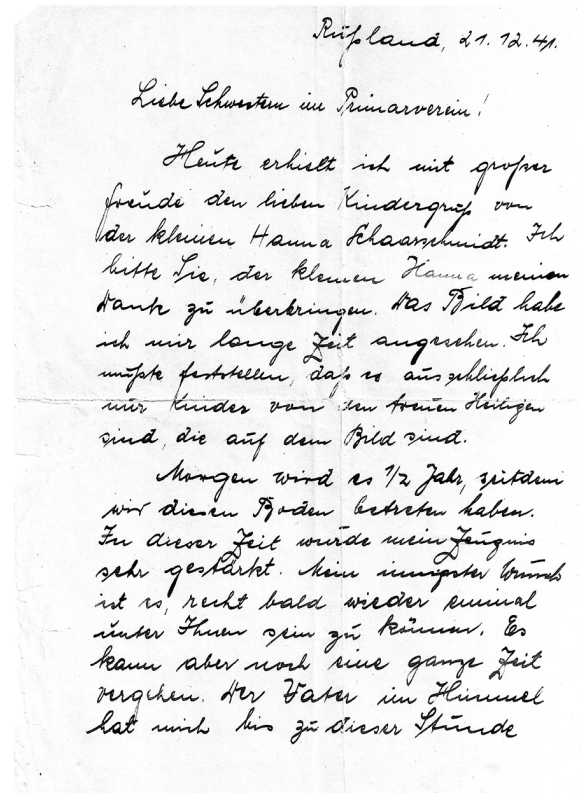 Rußland, 21.12.41.
Liebe Schwestern im Primarverein!
Heute erhielt ich mit großer
Freude den lieben Kindergruß von
der kleinen Hanna Schaarschmidt. Ich
bitte Sie, der kleinen Hanna meinen
Dank zu überbringen. Das Bild habe
ich mir lange Zeit angesehen. Ich
mußte feststellen, daß es ausschließlich
nur Kinder von den treuen Heiligen
sind, die auf dem Bild sind.
Morgen wird es 1/2 Jahr, seitdem
wir diesen Boden betreten haben.
In dieser Zeit wurde mein Zeugnis
sehr gestärkt. Mein innigster Wunsch
ist es, recht bald wieder einmal
unter Ihnen sein zu können. Es
kann aber noch eine ganze Zeit
vergehen. Der Vater im Himmel
hat mich bis zu dieser Stunde